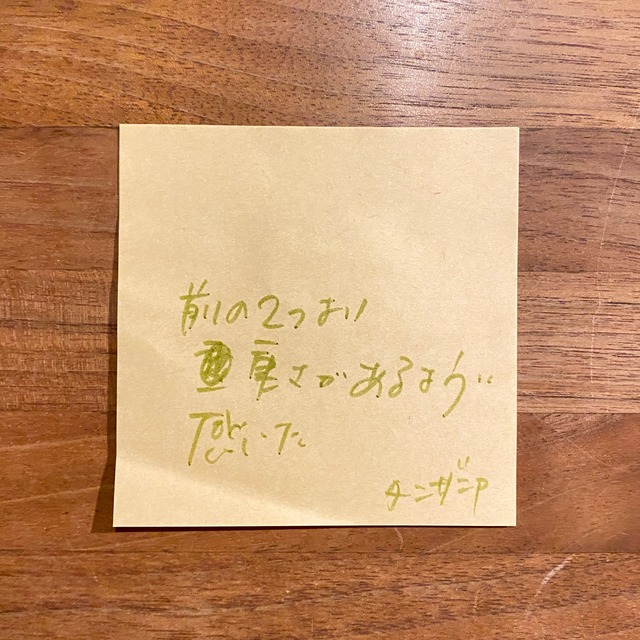 前の2つより
重厚さがあるように
感じた
タンザニア